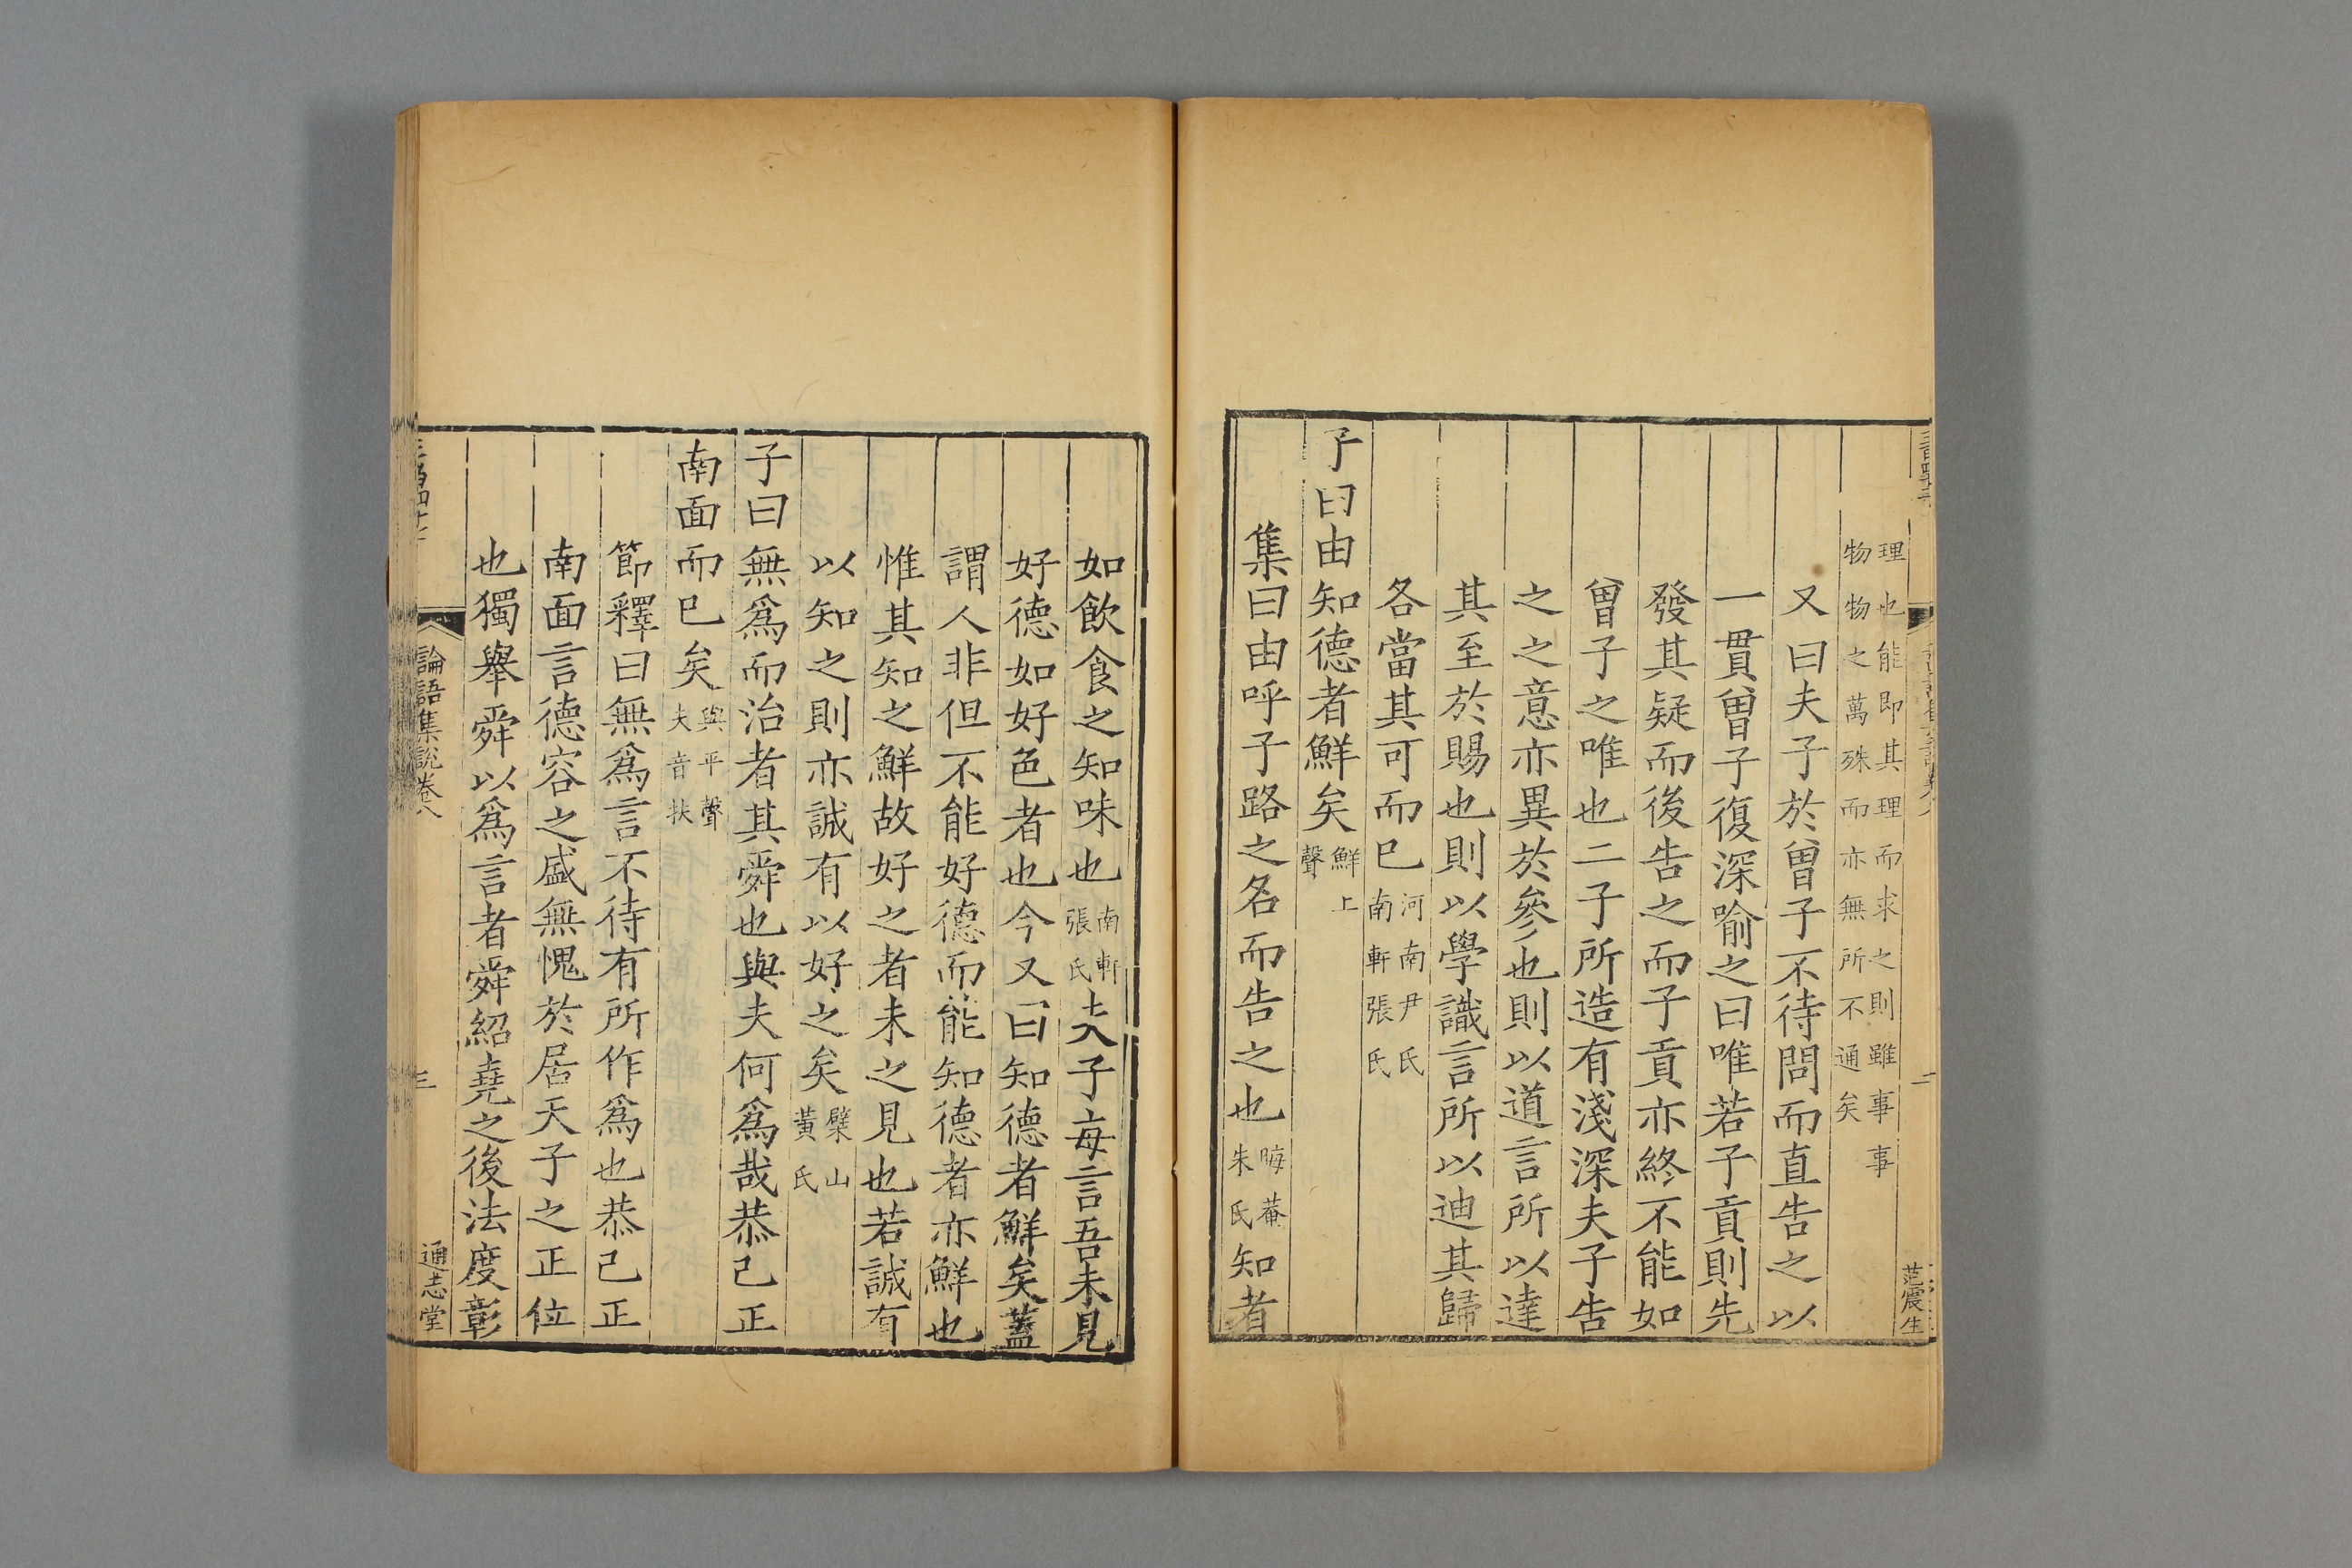 理也能即其理而求之則雖事事
物物之萬殊而亦無所不通矣
又曰夫子於曾子不待問而直告之以
一貫曾子復深喻之曰唯若子貢則先
發其疑而後告之而子貢亦終不能如
曾子之唯也二子所造有淺深夫子告
之之意亦異於參也則以道言所以達
其至於賜也則以學識言所以迪其歸
各當其可而已河南尹氏南軒張氏
子曰由知德者鮮矣鮮上聲
集曰由呼子路之名而告之也晦菴朱氏知者
范震生
如飲食之知味也南軒張氏夫子每言吾未見
好德如好色者也今又曰知德者鮮矣蓋
謂人非但不能好德而能知德者亦鮮也
惟其知之鮮故好之者未之見也若誠有
以知之則亦誠有以好之矣檗山黃氏
子曰無爲而治者其舜也與夫何爲哉恭己正
南面而已矣與平聲夫音扶
節釋曰無爲言不待有所作爲也恭己正
南面言德容之盛無愧於居天子之正位
也獨舉舜以爲言者舜紹堯之後法度彰
論語集說卷八
三
通志堂